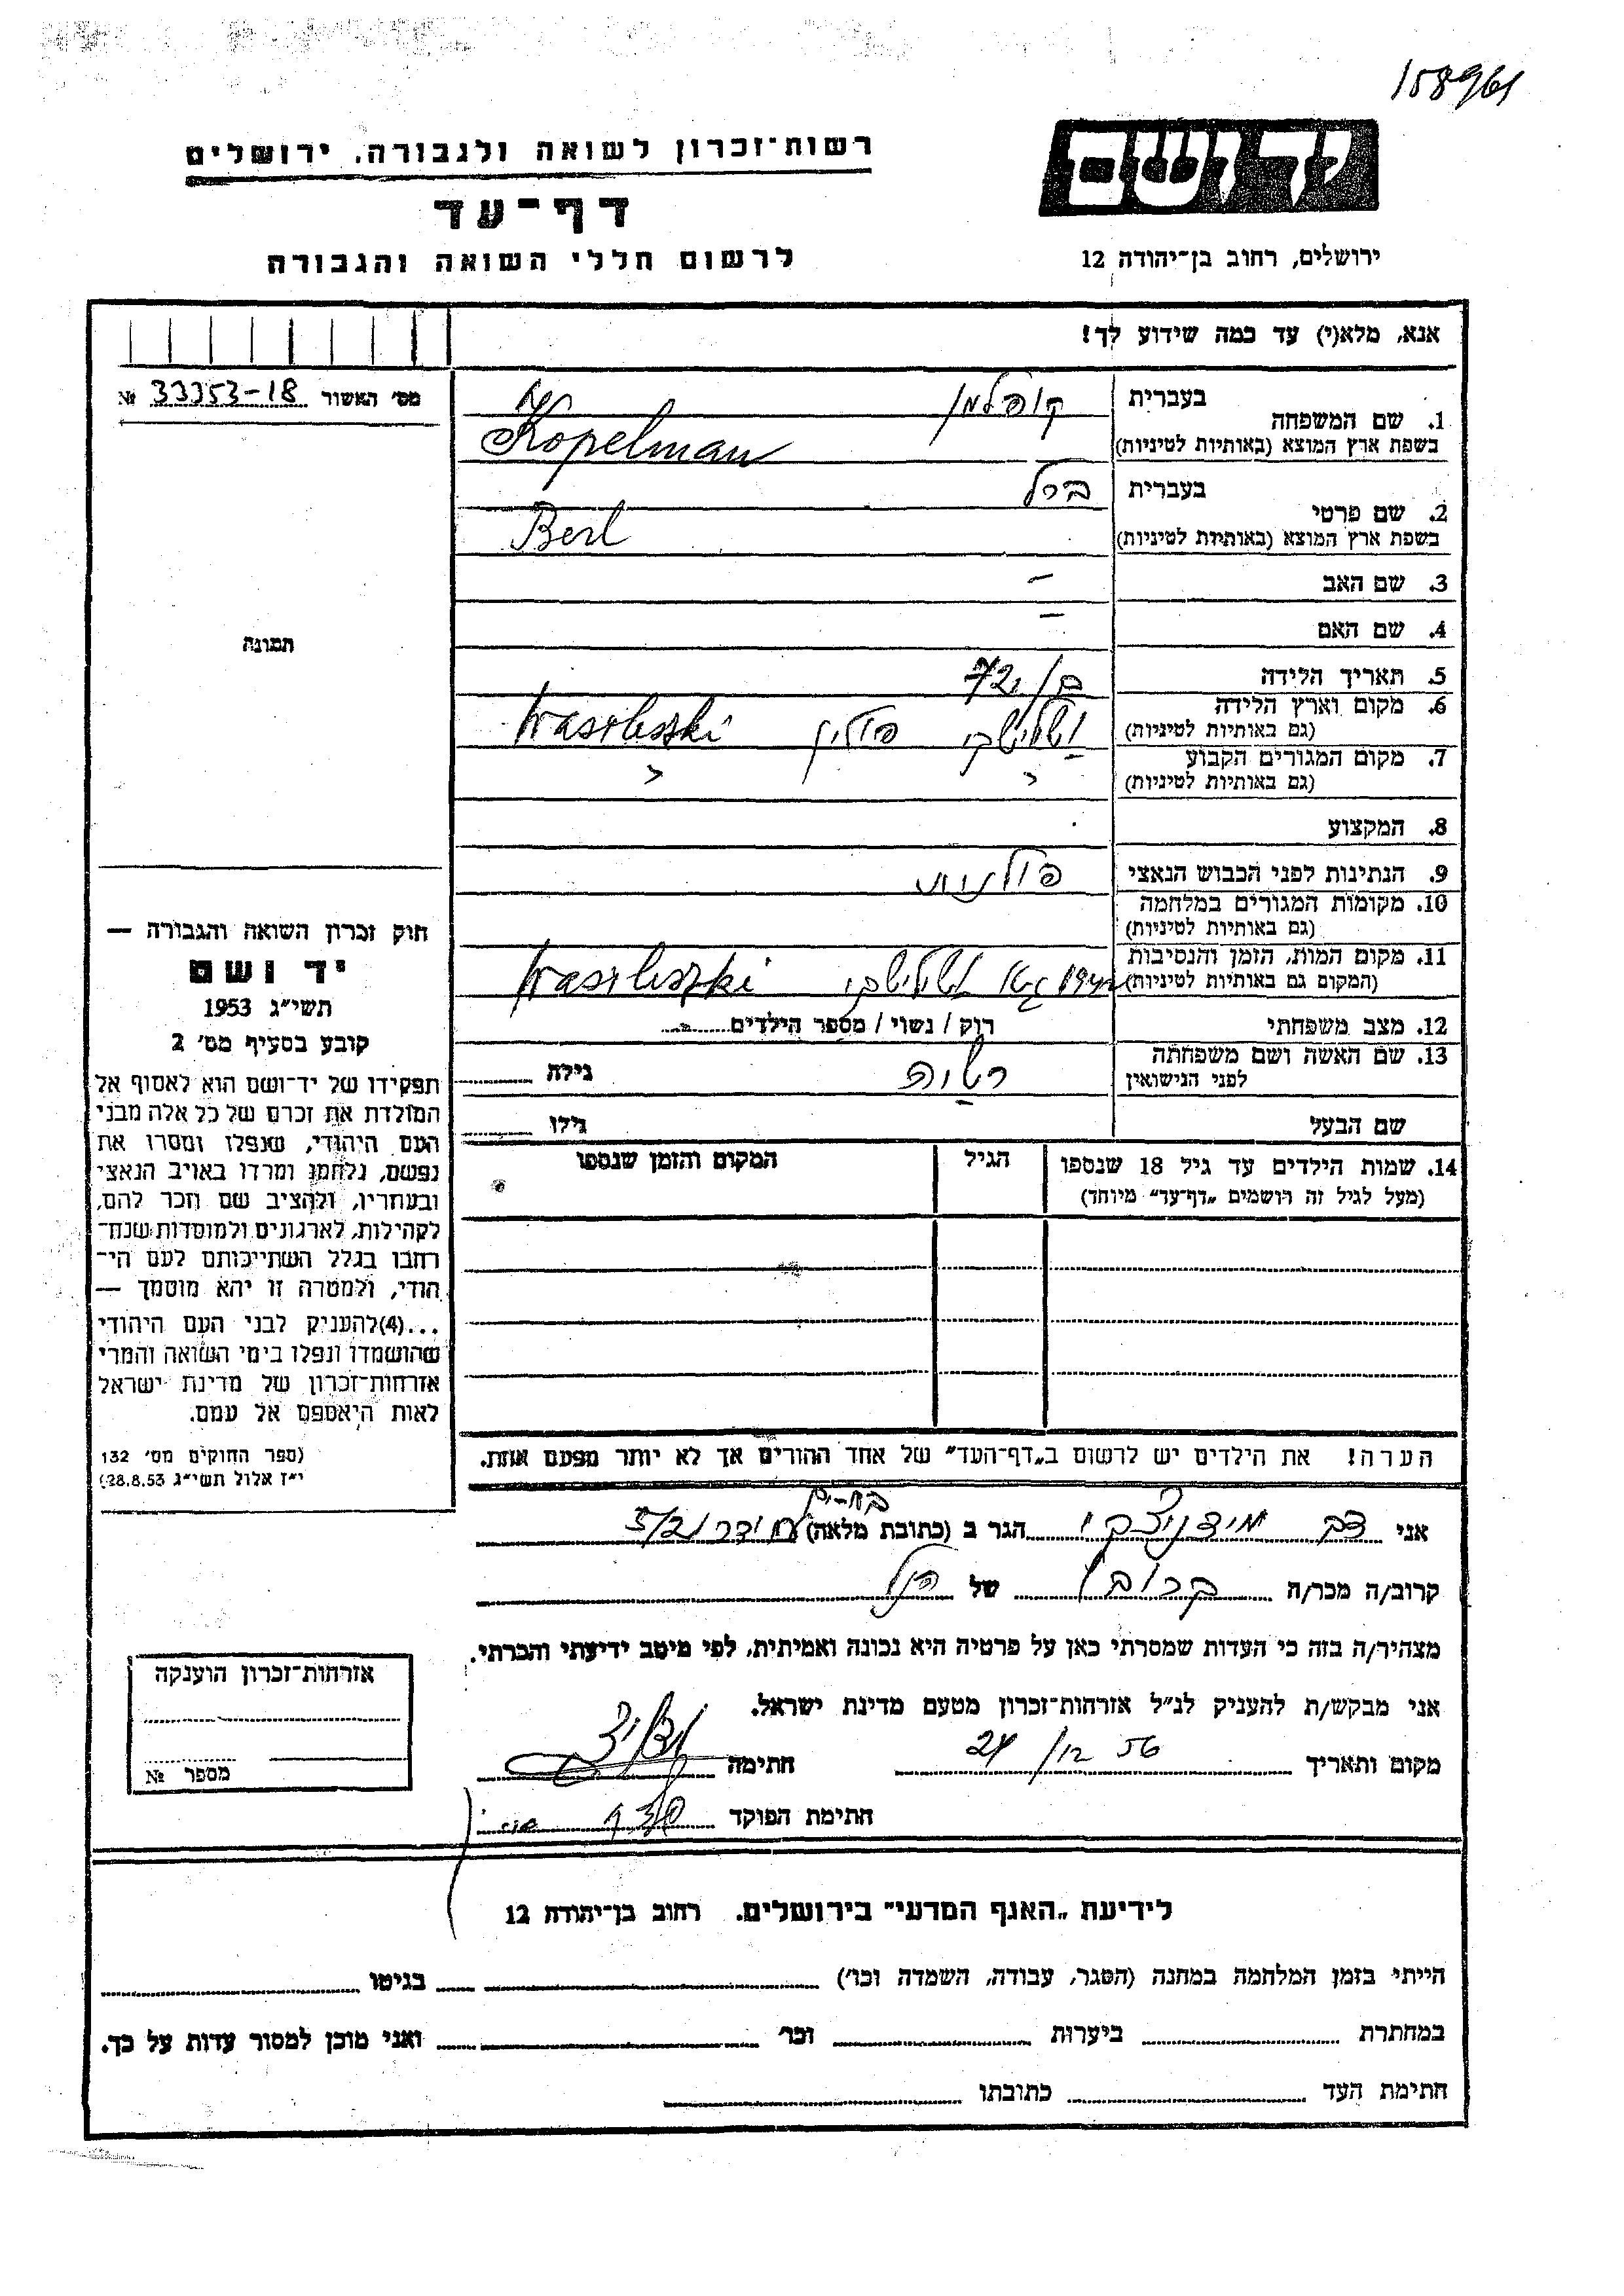 158961
יד ושם
רשות־זכרון לשואה ולגבורה. ירושלים
דף־עד
לרשום חללי השואה והגבורה
ירושלים, רחוב בן־יהודה 12
אנא, מלא(י) עד כמה שידוע לך!
מס' האשור 33353-18 №
תמונה
חוק זכרון השואה והגבורה —
יד ושם
תשי"ג 1953
קובע בסעיף מס' 2
תפקידו של יד־ושם הוא לאסוף אל
המולדת את זכרם של כל אלה מבני
העם היהודי, שנפלו ומסרו את
נפשם, נלחמו ומרדו באויב הנאצי
ובעוזריו, ולהציב שם וזכר להם,
לקהילות, לארגונים ולמוסדות שנח־
רחבו בגלל השתייכותם לעם הי־
הודי, ולמטרה זו יהא מוסמך —
...(4)להעניק לבני העם היהודי
שהושמדו ונפלו בימי השואה והמרי
אזרחות־זכרון של מדינת ישראל
לאות היאספם אל עמם.
(ספר החוקים מס' 132
י"ז אלול תשי"ג 28.8.53)
1. שם המשפחה בעברית קופלמן
בשפת ארץ המוצא (באותיות לטיניות) Kopelman
2. שם פרטי בעברית ברל
בשפת ארץ המוצא (באותיות לטיניות) Berl
3. שם האב –
4. שם האם –
5. תאריך הלידה בן/72
6. מקום וארץ הלידה
(גם באותיות לטיניות) פולין Wasiliszki
7. מקום המגורים הקבוע
(גם באותיות לטיניות)
8. המקצוע
9. הנתינות לפני הכבוש הנאצי פולנית
10. מקומות המגורים במלחמה
(גם באותיות לטיניות)
11. מקום המות, הזמן והנסיבות
(המקום גם באותיות לטיניות) 1942 גטו Wasiliszki
12. מצב משפחתי רוק / נשוי / מספר הילדים
13. שם האשה ושם משפחתה
לפני הנישואין גילה
שם הבעל גילו
14. שמות הילדים עד גיל 18 שנספו הגיל המקום והזמן שנספו
(מעל לגיל זה רושמים „דף־עד" מיוחד)
הערה! את הילדים יש לרשום ב„דף־העד" של אחד ההורים אך לא יותר מפעם אחת.
אני דב הגר ב (כתובת מלאה)
קרוב/ה מכר/ה קרוב של הנ"ל
מצהיר/ה בזה כי העדות שמסרתי כאן על פרטיה היא נכונה ואמיתית, לפי מיטב ידיעתי והכרתי.
אני מבקש/ת להעניק לנ"ל אזרחות־זכרון מטעם מדינת ישראל.
מקום ותאריך 24/12 56 חתימה
חתימת הפוקד
אזרחות־זכרון הוענקה
מספר №
לידיעת „האגף המדעי" בירושלים. רחוב בן־יהודה 12
הייתי בזמן המלחמה במחנה (הסגר, עבודה, השמדה וכו') בגיטו
במחתרת ביערות וכו' ואני מוכן למסור עדות על כך.
חתימת העד כתובתו